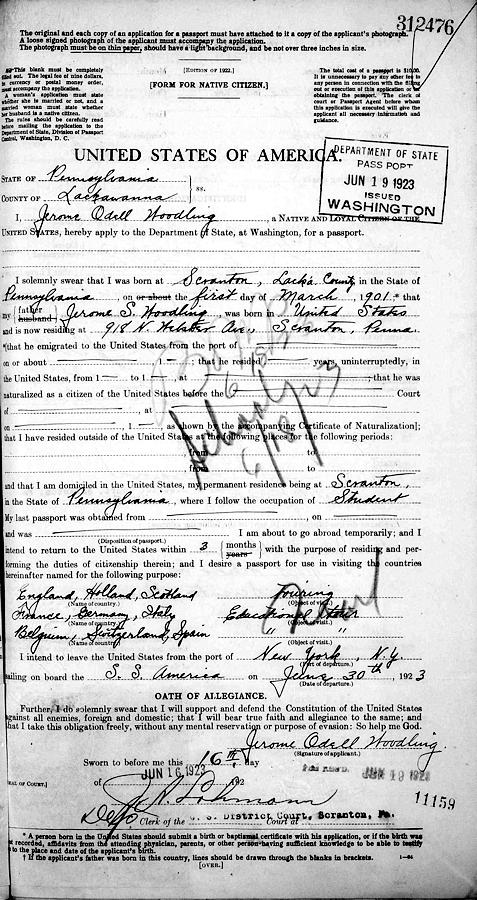 312476
The original and each copy of an application for a passport must have attached to it a copy of the applicant's photograph.
A loose signed photograph of the applicant must accompany the application.
The photograph must be on thin paper, should have a light background, and be not over three inches in size.
This blank must be completely
filled out. The legal fee of nine dollars,
in currency or postal money
order, must accompany the application.
A woman's application must state
whether she is married or not, and a
married woman must state whether
her husband is a native citizen.
The rules should be carefully read
before mailing the application to the
Department of State, Division of Passport
Control, Washington, D. C.
[EDITION OF 1922.]
[FORM FOR NATIVE CITIZEN.]
The total cost of a passport is $10.00.
It is unnecessary to pay any other fee to
any person in connection with the filling
out or execution of this application or the
obtaining the passport. The clerk of
court or Passport Agent before whom
this application is executed will give the
applicant all necessary information and
guidance.
UNITED STATES OF AMERICA.
DEPARTMENT OF STATE
PASSPORT
JUN 19 1923
ISSUED
WASHINGTON
STATE OF Pennsylvania
COUNTY OF Lackawanna } ss.
I, Jerome Odell Woodling, a NATIVE AND LOYAL CITIZEN OF THE
UNITED STATES, hereby apply to the Department of State, at Washington, for a passport.
I solemnly swear that I was born at Scranton, Lack'a County in the State of
Pennsylvania, on or about the first day of March, 1901* that
my {father husband} Jerome S. Woodling, was born in United States
and is now residing at 918 N. Webster Ave, Scranton, Penna.
†[that he emigrated to the United States from the port of
on or about, 1; that he resided years, uninterruptedly, in
the United States, from 1 to 1, at; that he was
naturalized as a citizen of the United States before the Court
of, at
on, 1, as shown by the accompanying Certificate of Naturalization];
that I have resided outside of the United States at the following places for the following periods:
from to
from to
and that I am domiciled in the United States, my permanent residence being at Scranton,
in the State of Pennsylvania, where I follow the occupation of Student
My last passport was obtained from, on
and was (Disposition of passport.) I am about to go abroad temporarily; and I
intend to return to the United States within 3 {months years} with the purpose of residing and per-
forming the duties of citizenship therein; and I desire a passport for use in visiting the countries
hereinafter named for the following purpose:
England, Holland, Scotland Touring
(Name of country.) (Object of visit.)
France, Germany, Italy Educational
(Name of country.) (Object of visit.)
Belgium, Switzerland, Spain " "
(Name of country.) (Object of visit.)
I intend to leave the United States from the port of New York, N.Y
(Port of departure.)
sailing on board the S. S. America on June 30th, 1923
(Date of departure.)
OATH OF ALLEGIANCE.
Further, I do solemnly swear that I will support and defend the Constitution of the United States
against all enemies, foreign and domestic; that I will bear true faith and allegiance to the same; and
that I take this obligation freely, without any mental reservation or purpose of evasion: So help me God.
Jerome Odell Woodling
(Signature of applicant.)
Sworn to before me this 16th day
JUN 16 1923 192
JUN 19 1923
[SEAL OF COURT.]
11159
Clerk of the U. S. District Court, Scranton, Pa.
* A person born in the United States should submit a birth or baptismal certificate with his application, or if the birth was
not recorded, affidavits from the attending physician, parents, or other person having sufficient knowledge to be able to testify
as to the place and date of the applicant's birth.
† If the applicant's father was born in this country, lines should be drawn through the blanks in brackets.
[OVER.]